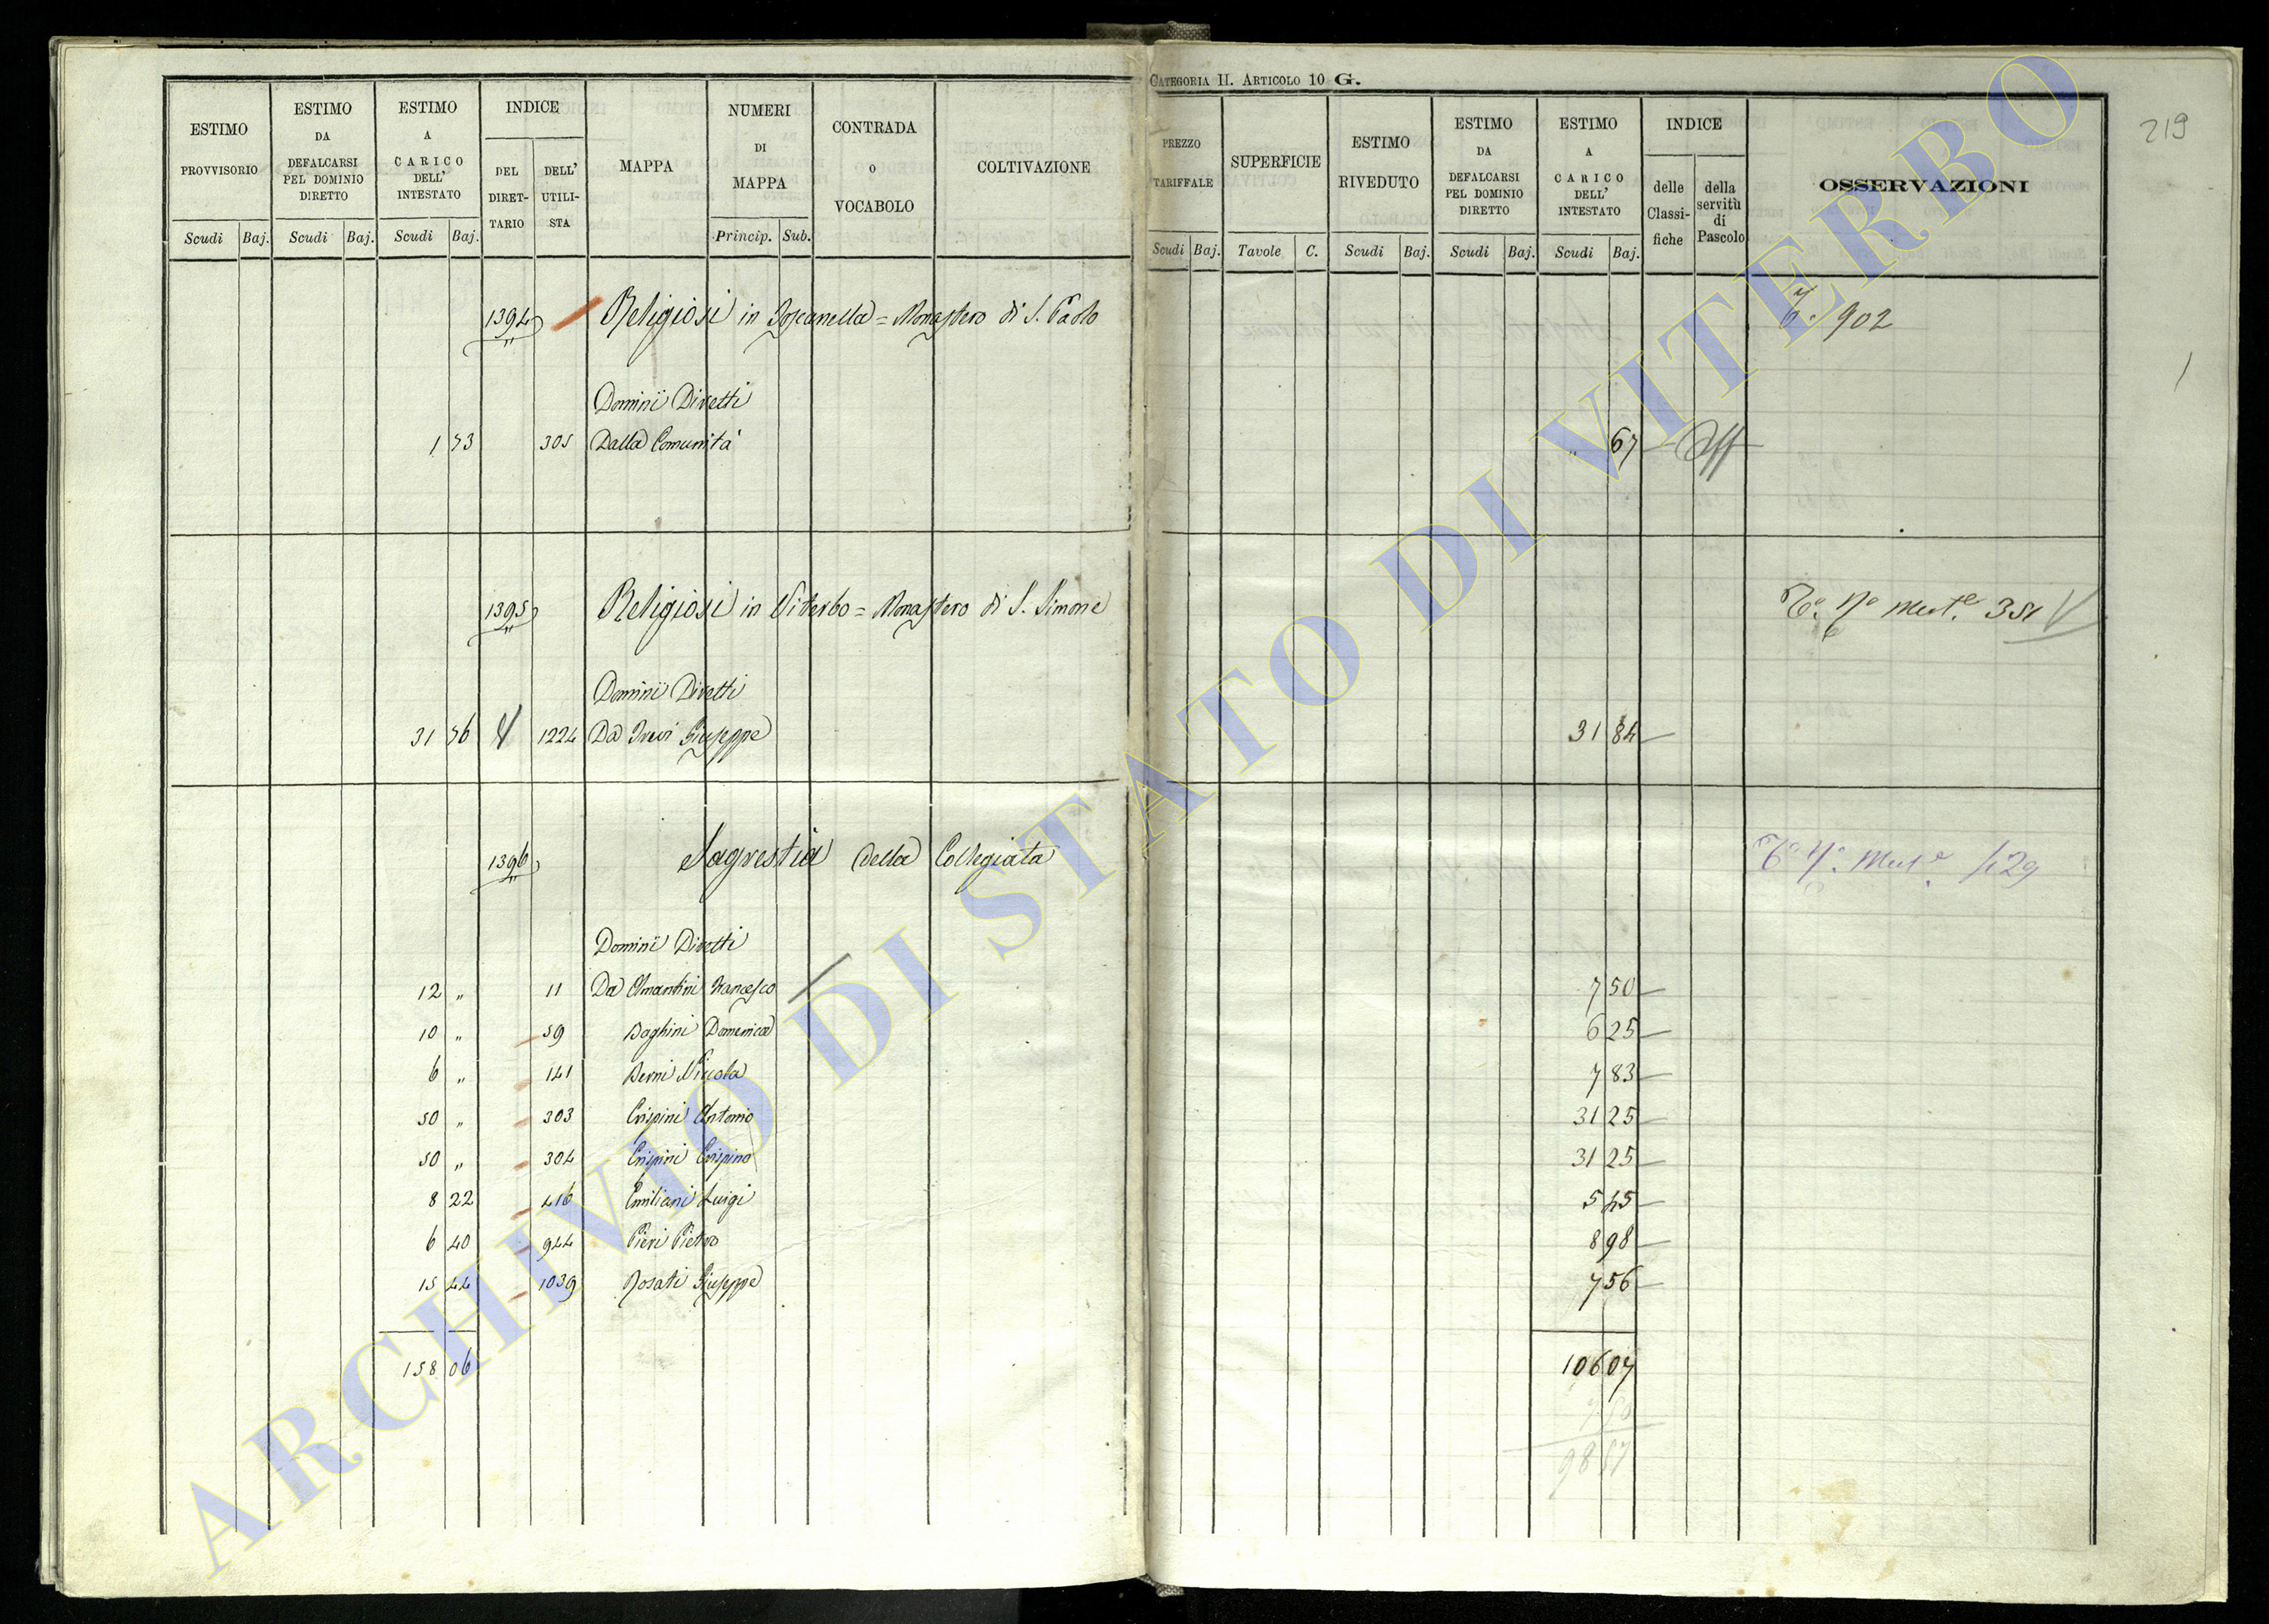 CATEGORIA II. ARTICOLO 10 G.
219
ESTIMO PROVVISORIO
ESTIMO DA DEFALCARSI PEL DOMINIO DIRETTO
ESTIMO A CARICO DELL' INTESTATO
INDICE
DEL DIRET-TARIO
DELL' UTILI-STA
MAPPA
NUMERI DI MAPPA
CONTRADA o VOCABOLO
COLTIVAZIONE
PREZZO TARIFFALE
SUPERFICIE
ESTIMO RIVEDUTO
ESTIMO DA DEFALCARSI PEL DOMINIO DIRETTO
ESTIMO A CARICO DELL' INTESTATO
INDICE
delle Classi-fiche
della servitù di Pascolo
OSSERVAZIONI
Scudi Baj. Scudi Baj. Scudi Baj. Princip. Sub.
Scudi Baj. Tavole C. Scudi Baj. Scudi Baj. Scudi Baj.
1394 Religiosi in Toscanella = Monastero di S. Paolo 902
Dominii Diretti
1 73 305 Dalla Comunità " 67
1395 Religiosi in Viterbo = Monastero di S. Simone 351
Dominii Diretti
31 76 1224 Da Giuseppe 31 84
1396 Sagrestia della Collegiata 429
Dominii Diretti
12 " 11 Da Amantini Francesco 7 50
10 " 59 Baghini Domenica 6 25
6 " 141 Berni Nicola 7 83
50 " 303 Crispini Antonio 31 25
50 " 304 Crispini Crispino 31 25
8 22 416 Emiliani Luigi 5 45
6 40 944 Pieri Pietro 8 98
15 44 1039 Rosati Giuseppe 7 56
158 06 106 07
7 50
98 57
ARCHIVIO DI STATO DI VITERBO